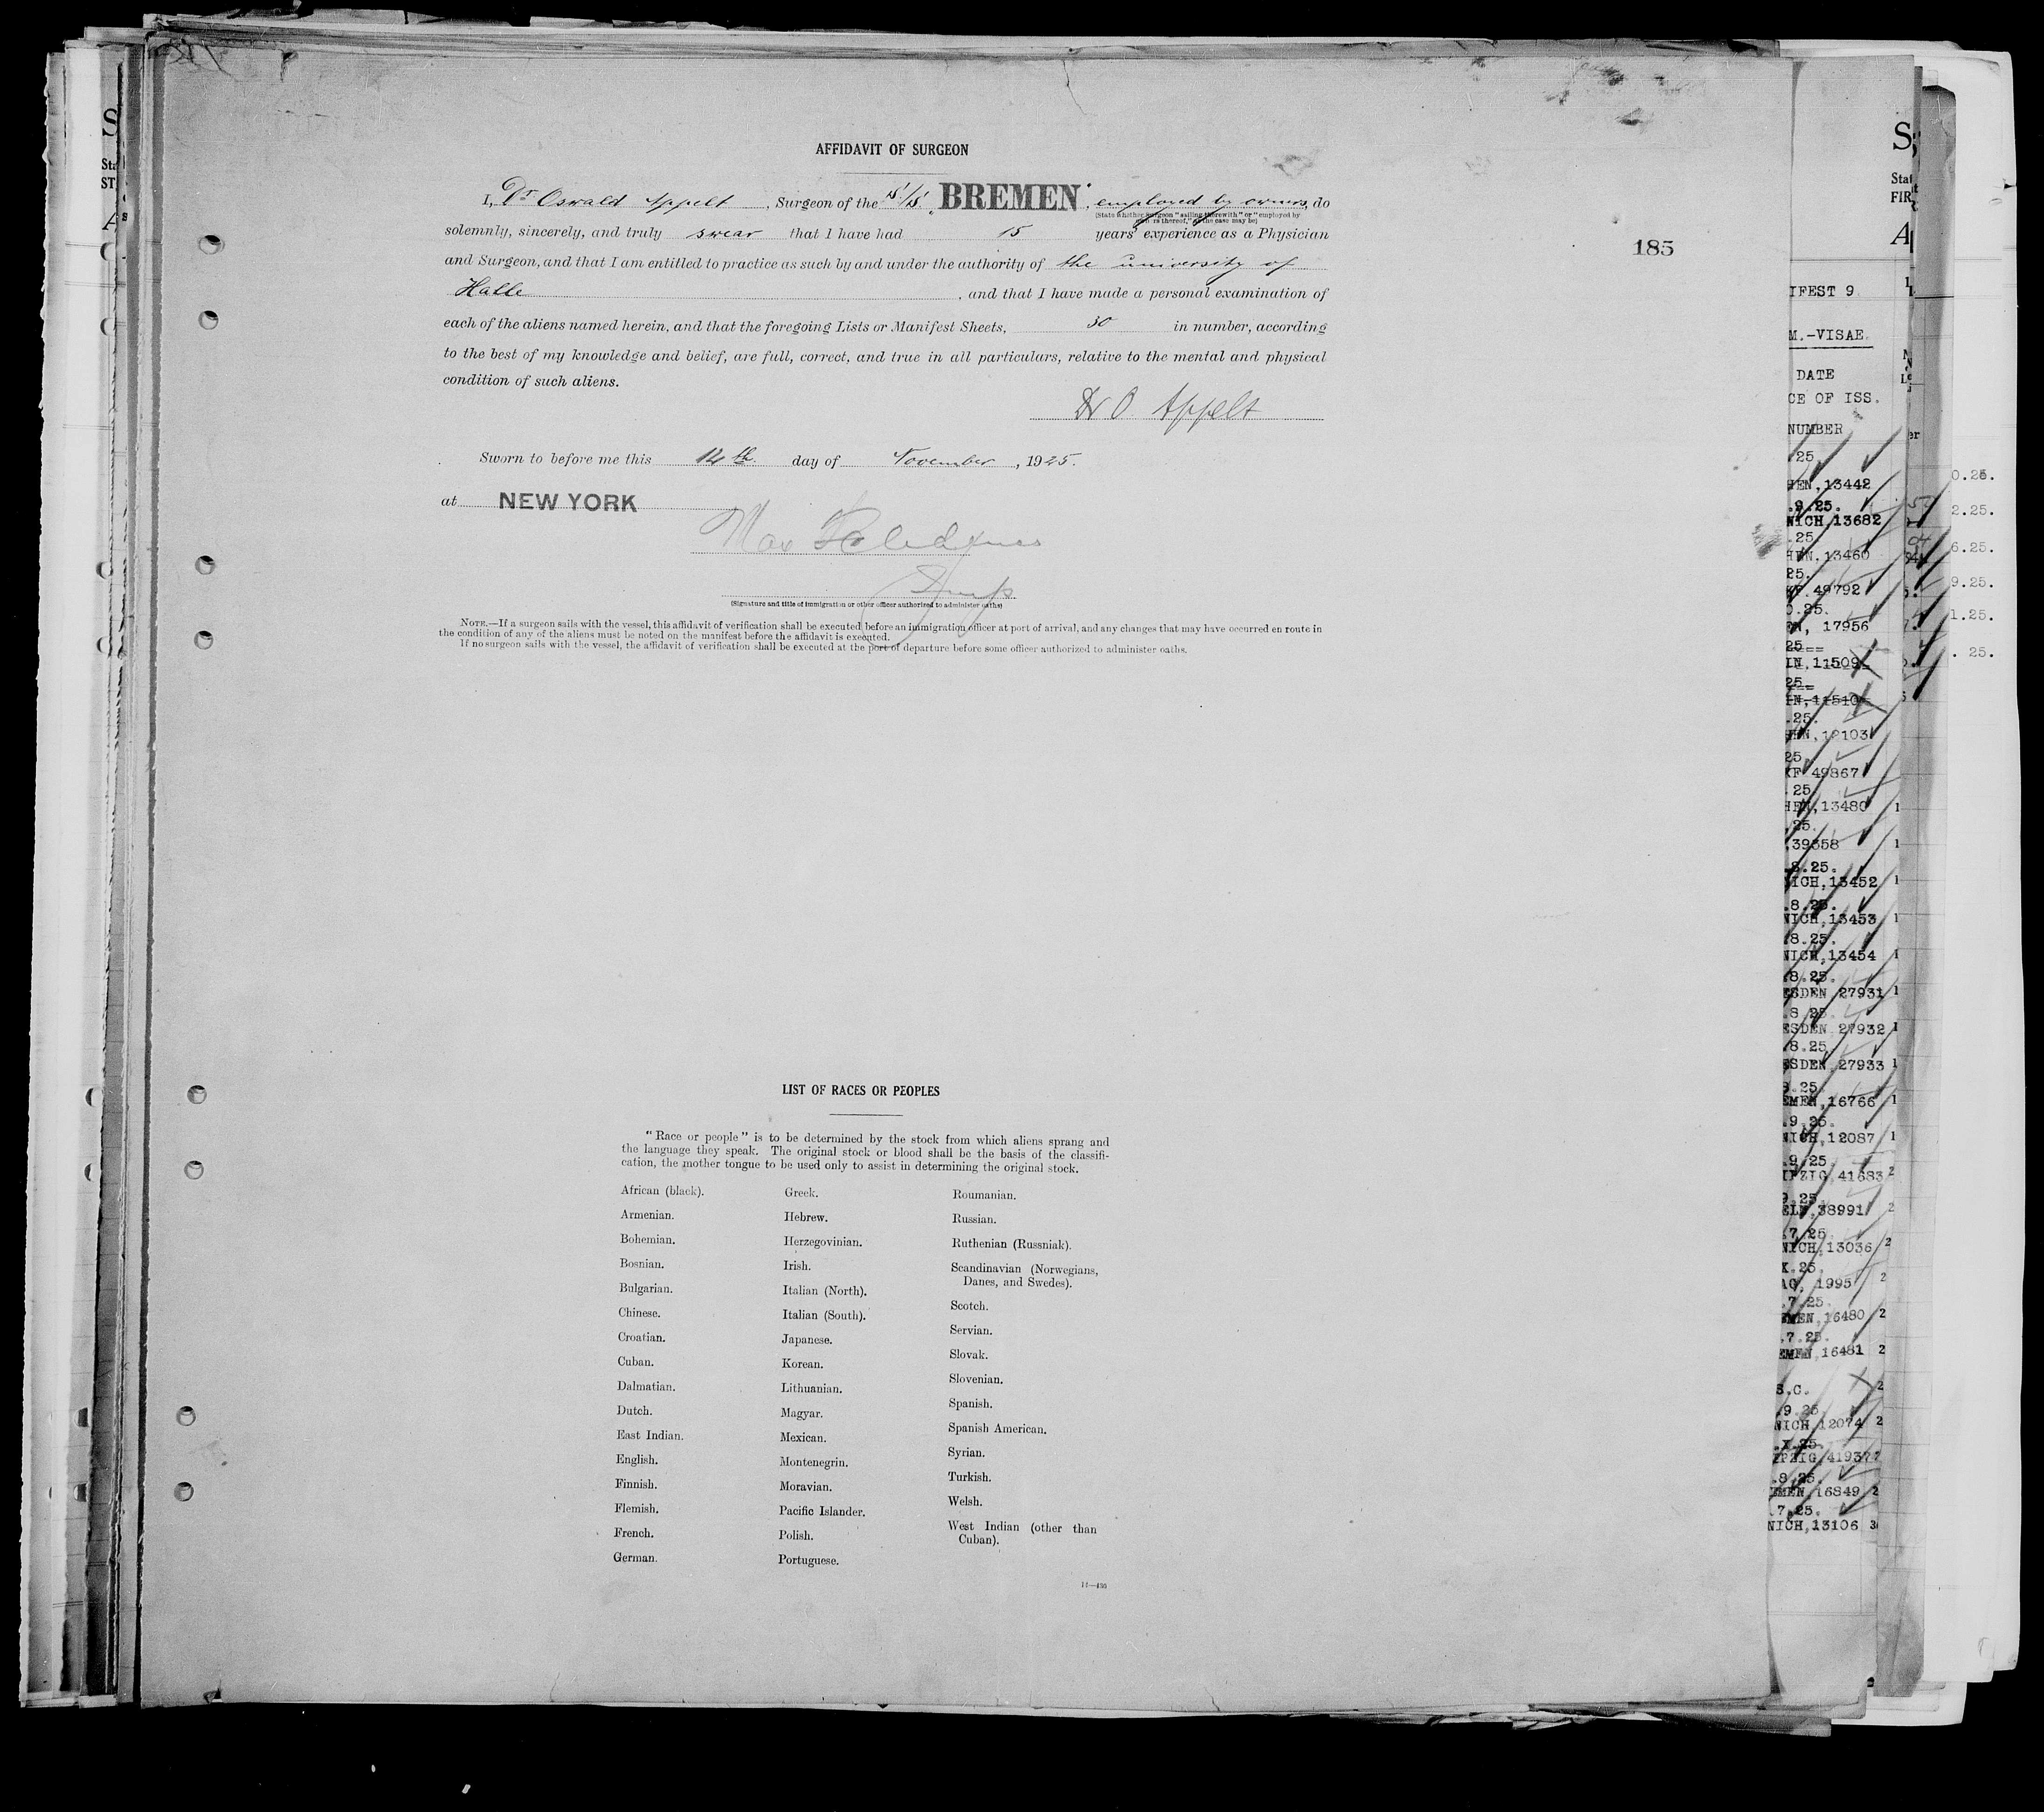 AFFIDAVIT OF SURGEON
I, Dr Oswald Appelt, Surgeon of the S/S. "BREMEN", employed by owners, do
(State whether surgeon "sailing therewith" or "employed by
owners thereof," as the case may be)
solemnly, sincerely, and truly swear that I have had 15 years' experience as a Physician
and Surgeon, and that I am entitled to practice as such by and under the authority of the university of
Halle, and that I have made a personal examination of
each of the aliens named herein, and that the foregoing Lists or Manifest Sheets, 30 in number, according
to the best of my knowledge and belief, are full, correct, and true in all particulars, relative to the mental and physical
condition of such aliens.
Dr O. Appelt
Sworn to before me this 14th day of November, 1925.
at NEW YORK
Max
Insp
(Signature and title of immigration or other officer authorized to administer oaths)
NOTE.—If a surgeon sails with the vessel, this affidavit of verification shall be executed before an immigration officer at port of arrival, and any changes that may have occurred en route in
the condition of any of the aliens must be noted on the manifest before the affidavit is executed.
If no surgeon sails with the vessel, the affidavit of verification shall be executed at the port of departure before some officer authorized to administer oaths.
185
LIST OF RACES OR PEOPLES
"Race or people" is to be determined by the stock from which aliens sprang and
the language they speak. The original stock or blood shall be the basis of the classifi-
cation, the mother tongue to be used only to assist in determining the original stock.
African (black).
Armenian.
Bohemian.
Bosnian.
Bulgarian.
Chinese.
Croatian.
Cuban.
Dalmatian.
Dutch.
East Indian.
English.
Finnish.
Flemish.
French.
German.
Greek.
Hebrew.
Herzegovinian.
Irish.
Italian (North).
Italian (South).
Japanese.
Korean.
Lithuanian.
Magyar.
Mexican.
Montenegrin.
Moravian.
Pacific Islander.
Polish.
Portuguese.
Roumanian.
Russian.
Ruthenian (Russniak).
Scandinavian (Norwegians,
Danes, and Swedes).
Scotch.
Servian.
Slovak.
Slovenian.
Spanish.
Spanish American.
Syrian.
Turkish.
Welsh.
West Indian (other than
Cuban).
14—430
IFEST 9
M.-VISAE.
DATE
CE OF ISS.
NUMBER
HEN, 13442
.9.25.
NICH, 13682
HEN, 13460
KF 49792
EN, 17956
IN, 11509
IN, 11510
HEN, 12103
KF 49867
HEN, 13480
, 39358
.8.25.
NICH, 13452
.8.25.
NICH, 13453
.8.25.
NICH, 13454
.8.25.
ESDEN 27931
.8.25.
ESDEN 27932
.8.25.
ESDEN 27933
9.25.
EMEN, 16766
.9.25.
NICH, 12087
.9.25.
IPZIG, 41683
9.25.
ELN, 38991
.7.25.
NICH, 13036
X.25.
AG, 1995
.7.25.
EMEN, 16480
.7.25.
EMEN, 16481
S.C.
.9.25.
NICH 12074
.X.25.
IPZIG, 41937
.8.25.
EMEN, 16849
.7.25.
NICH, 13106